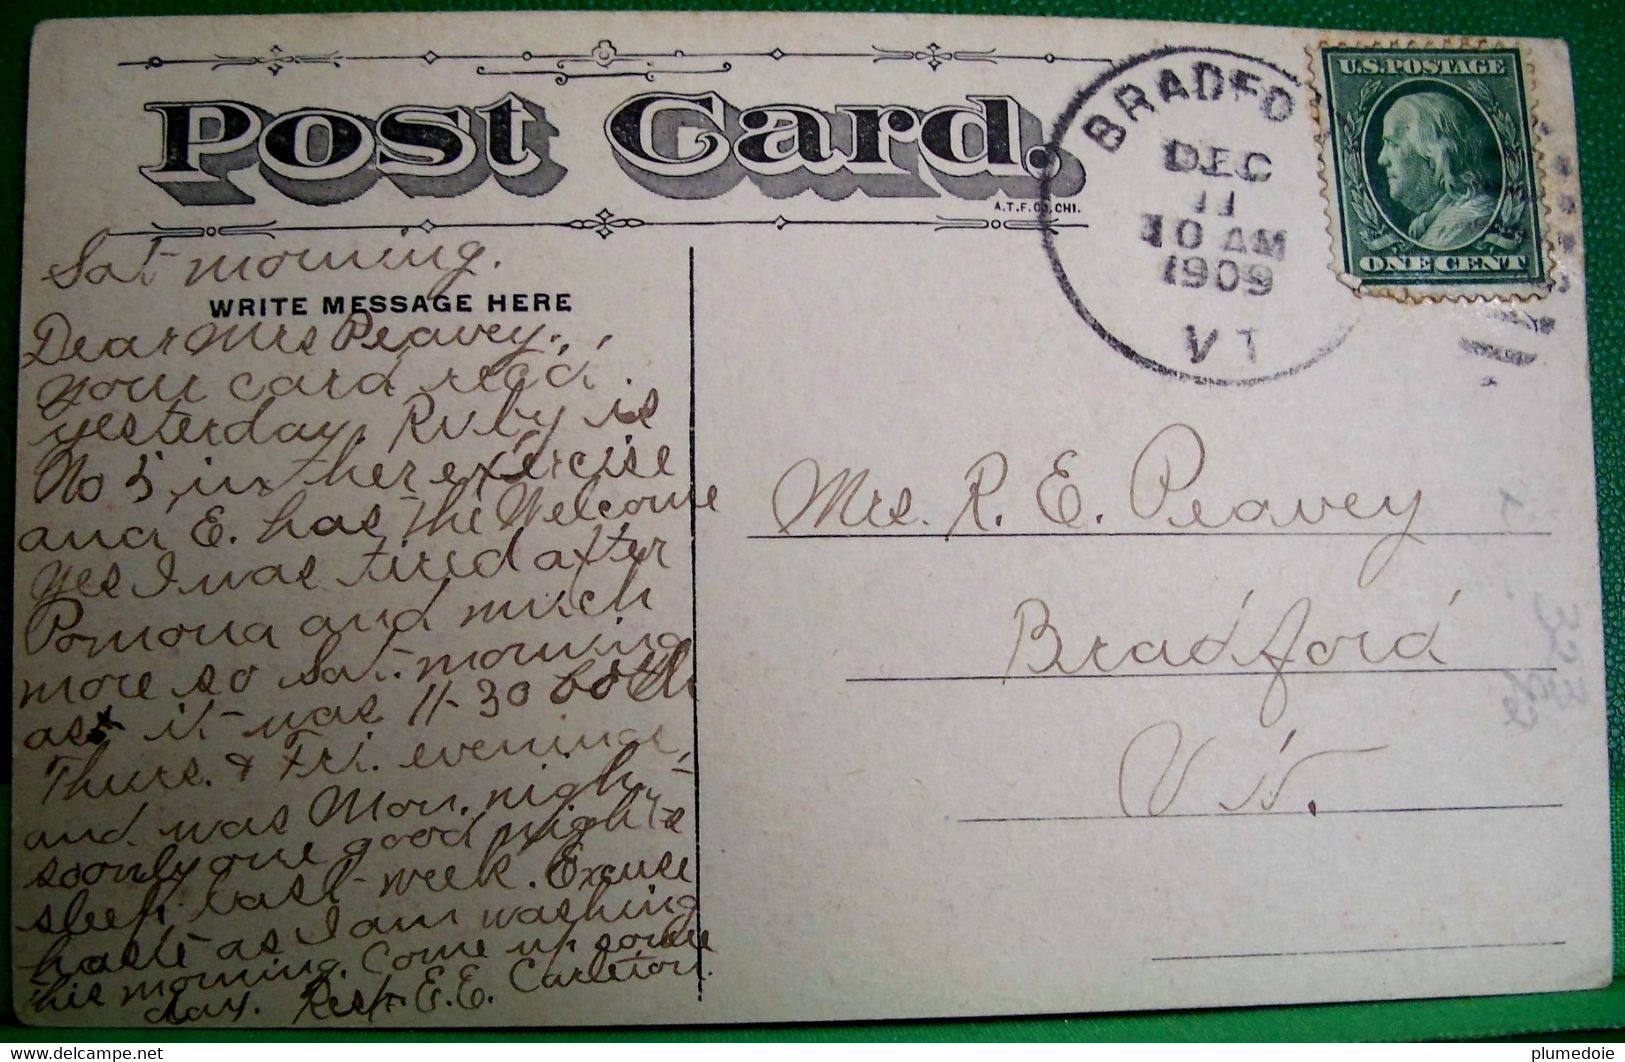 Post Card.
A.T.F. CO. CHI.
BRADFO
DEC
11
10 AM
1909
VT
U.S. POSTAGE
ONE CENT
Sat morning.
WRITE MESSAGE HERE
Dear Mrs Peavey:
your card rec'd
yesterday. Ruby is
No 5 in ther exercise
and E. has the Welcome
Yes I was tired after
Pomona and much
more so Sat. morning
as it was 11-30 both
Thurs. & Fri. evenings,
and was Mon. night
so only one good night's
sleep last week. Excuse
haste as I am washing
this morning. Come up some
day. Resp. E. E. Carleton.
Mrs. R. E. Peavey
Bradford
Vt.
delcampe.net
plumedoie